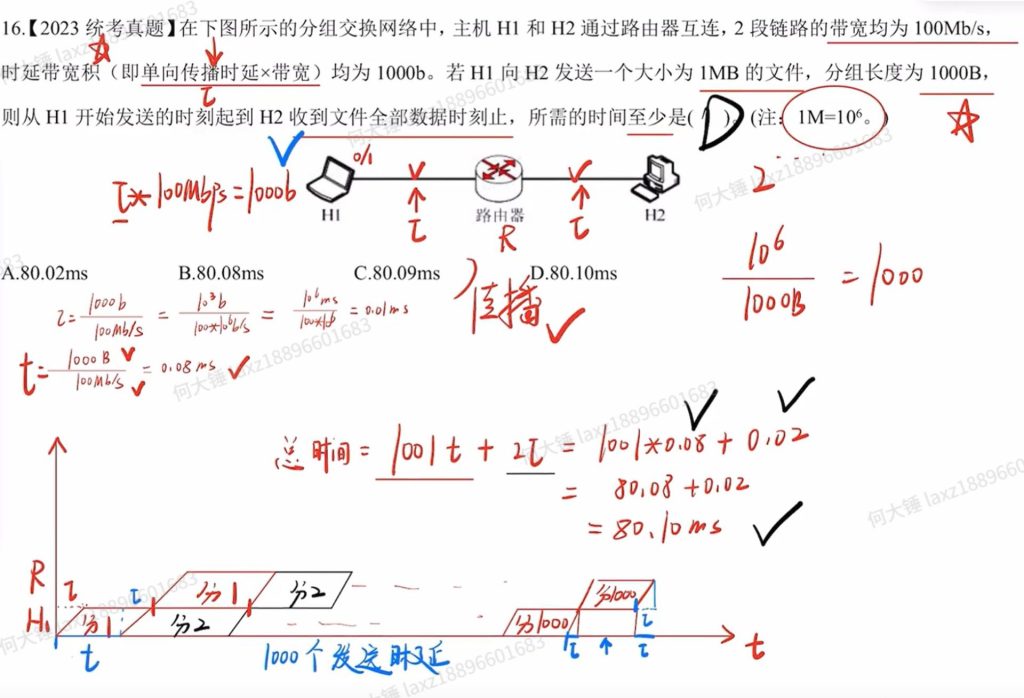 16.【2023 统考真题】在下图所示的分组交换网络中，主机 H1 和 H2 通过路由器互连，2 段链路的带宽均为 100Mb/s，
时延带宽积（即单向传播时延×带宽）均为 1000b。若 H1 向 H2 发送一个大小为 1MB 的文件，分组长度为 1000B，
τ
则从 H1 开始发送的时刻起到 H2 收到文件全部数据时刻止，所需的时间至少是( D )。(注：1M=10⁶。)
τ*100Mbps=1000b
0/1
H1
τ
路由器
R
τ
H2
2
10⁶
1000B
= 1000
A.80.02ms B.80.08ms C.80.09ms D.80.10ms
τ = 1000b / 100Mb/s = 10³b / 100*10⁶b/s = 10⁶ms / 100*10⁶ = 0.01ms
传播
t = 1000B / 100Mb/s = 0.08ms
总时间 = 1001t + 2τ = 1001*0.08 + 0.02
= 80.08 + 0.02
= 80.10ms
R τ τ 分1 分2 分1000
H1 分1 分2 分1000 τ
t 1000个发送时延 τ τ t
何大锤 laxz18896601683